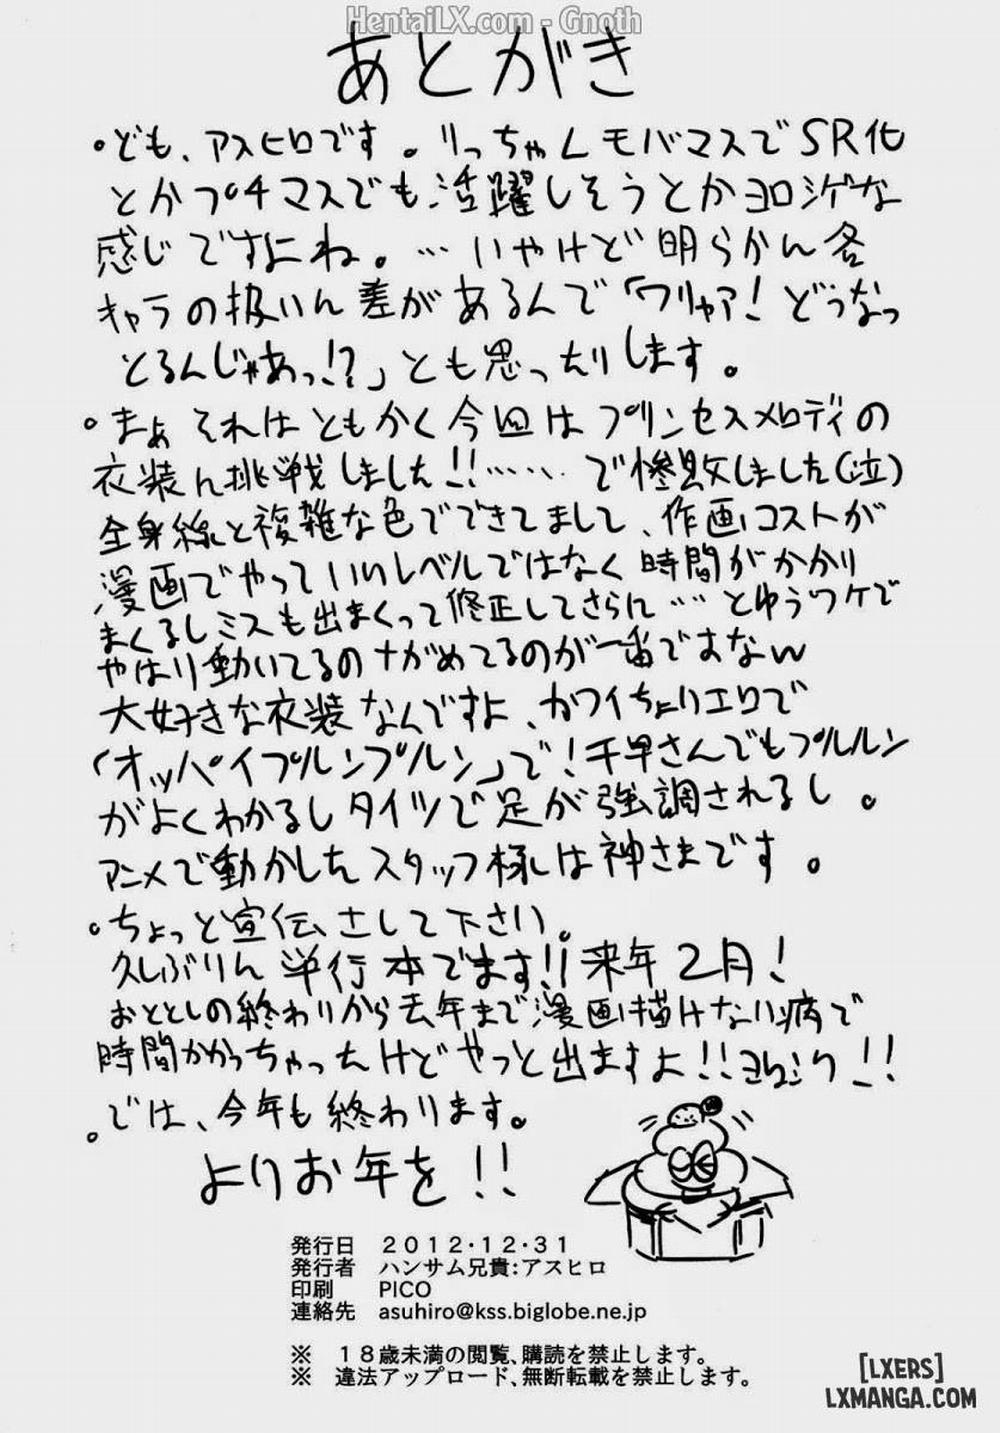 HentaiLX.com - Gnoth
あとがき
・ども、アスヒロです。りっちゃんモバマスでSR化
とかプチマスでも活躍しそうとかヨロシゲな
感じですよね。…いやけど明らかん各
キャラの扱いん差があるんで「ワリャア!どうなっ
とるんじゃあっ!?」とも思ったりします。
・まぁそれはともかく今回はプリンセスメロディの
衣装ん挑戦しました!!……で惨敗しました(泣)
全身線と複雑な色でできてまして、作画コストが
漫画でやっていいレベルではなく時間がかかり
まくるしミスも出まくって修正してさらに…とゆうワケで
やはり動いてるのながめてるのが一番ですなw
大好きな衣装なんですよ、カワイちょりエロで
「オッパイプルンプルン」で!千早さんでもプルルン
がよくわかるしタイツで足が強調されるし。
アニメで動かしたスタッフ様は神さまです。
・ちょっと宣伝さして下さい。
久しぶりん単行本でます!!来年2月!
おととしの終わりから去年まで漫画描けない病で
時間かかっちゃったけどやっと出ますよ!!ヨロシク!!
・では、今年も終わります。
よりお年を!!
発行日 2012・12・31
発行者 ハンサム兄貴:アスヒロ
印刷 PICO
連絡先 asuhiro@kss.biglobe.ne.jp
※ 18歳未満の閲覧、購読を禁止します。
※ 違法アップロード、無断転載を禁止します。
[LXERS]
LXMANGA.COM